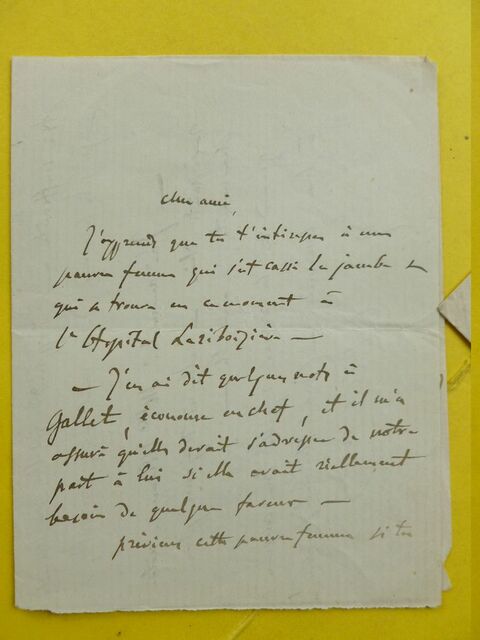 cher ami,
J'apprends que tu t'intéresses à une
pauvre femme qui s'est cassé la jambe et
qui se trouve en ce moment à
l'Hopital Lariboizière —
— J'en ai dit quelques mots à
Gallet, économe en chef, et il m'a
assuré qu'elle devait s'adresser de notre
part à lui si elle avait réellement
besoin de quelque faveur —
préviens cette pauvre femme si tu